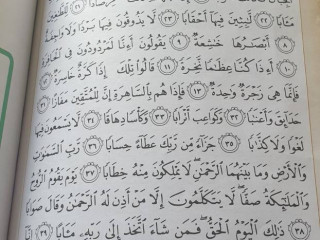 مَـَٔابًا ٢٢ لَّٰبِثِينَ فِيهَآ أَحْقَابًا ٢٣ لَّا يَذُوقُونَ فِيهَا بَرْدًا وَلَا وَاجِفَةٌ
٨ أَبْصَٰرُهَا خَٰشِعَةٌ ٩ يَقُولُونَ أَءِنَّا لَمَرْدُودُونَ فِي ٱلْحَافِرَةِ
١٠ أَءِذَا كُنَّا عِظَٰمًا نَّخِرَةً ١١ قَالُوا۟ تِلْكَ إِذًا كَرَّةٌ خَاسِرَةٌ ١٢
فَإِنَّمَا هِيَ زَجْرَةٌ وَٰحِدَةٌ ١٣ فَإِذَا هُم بِٱلسَّاهِرَةِ إِنَّ لِلْمُتَّقِينَ مَفَازًا ٣١
حَدَآئِقَ وَأَعْنَٰبًا ٣٢ وَكَوَاعِبَ أَتْرَابًا ٣٣ وَكَأْسًا دِهَاقًا ٣٤ لَّا يَسْمَعُونَ فِيهَا
لَغْوًا وَلَا كِذَّٰبًا ٣٥ جَزَآءً مِّن رَّبِّكَ عَطَآءً حِسَابًا ٣٦ رَّبِّ ٱلسَّمَٰوَٰتِ
وَٱلْأَرْضِ وَمَا بَيْنَهُمَا ٱلرَّحْمَٰنِ ۖ لَا يَمْلِكُونَ مِنْهُ خِطَابًا ٣٧ يَوْمَ يَقُومُ ٱلرُّوحُ
وَٱلْمَلَٰٓئِكَةُ صَفًّا ۖ لَّا يَتَكَلَّمُونَ إِلَّا مَنْ أَذِنَ لَهُ ٱلرَّحْمَٰنُ وَقَالَ صَوَابًا
٣٨ ذَٰلِكَ ٱلْيَوْمُ ٱلْحَقُّ ۖ فَمَن شَآءَ ٱتَّخَذَ إِلَىٰ رَبِّهِۦ مَـَٔابًا ٣٩